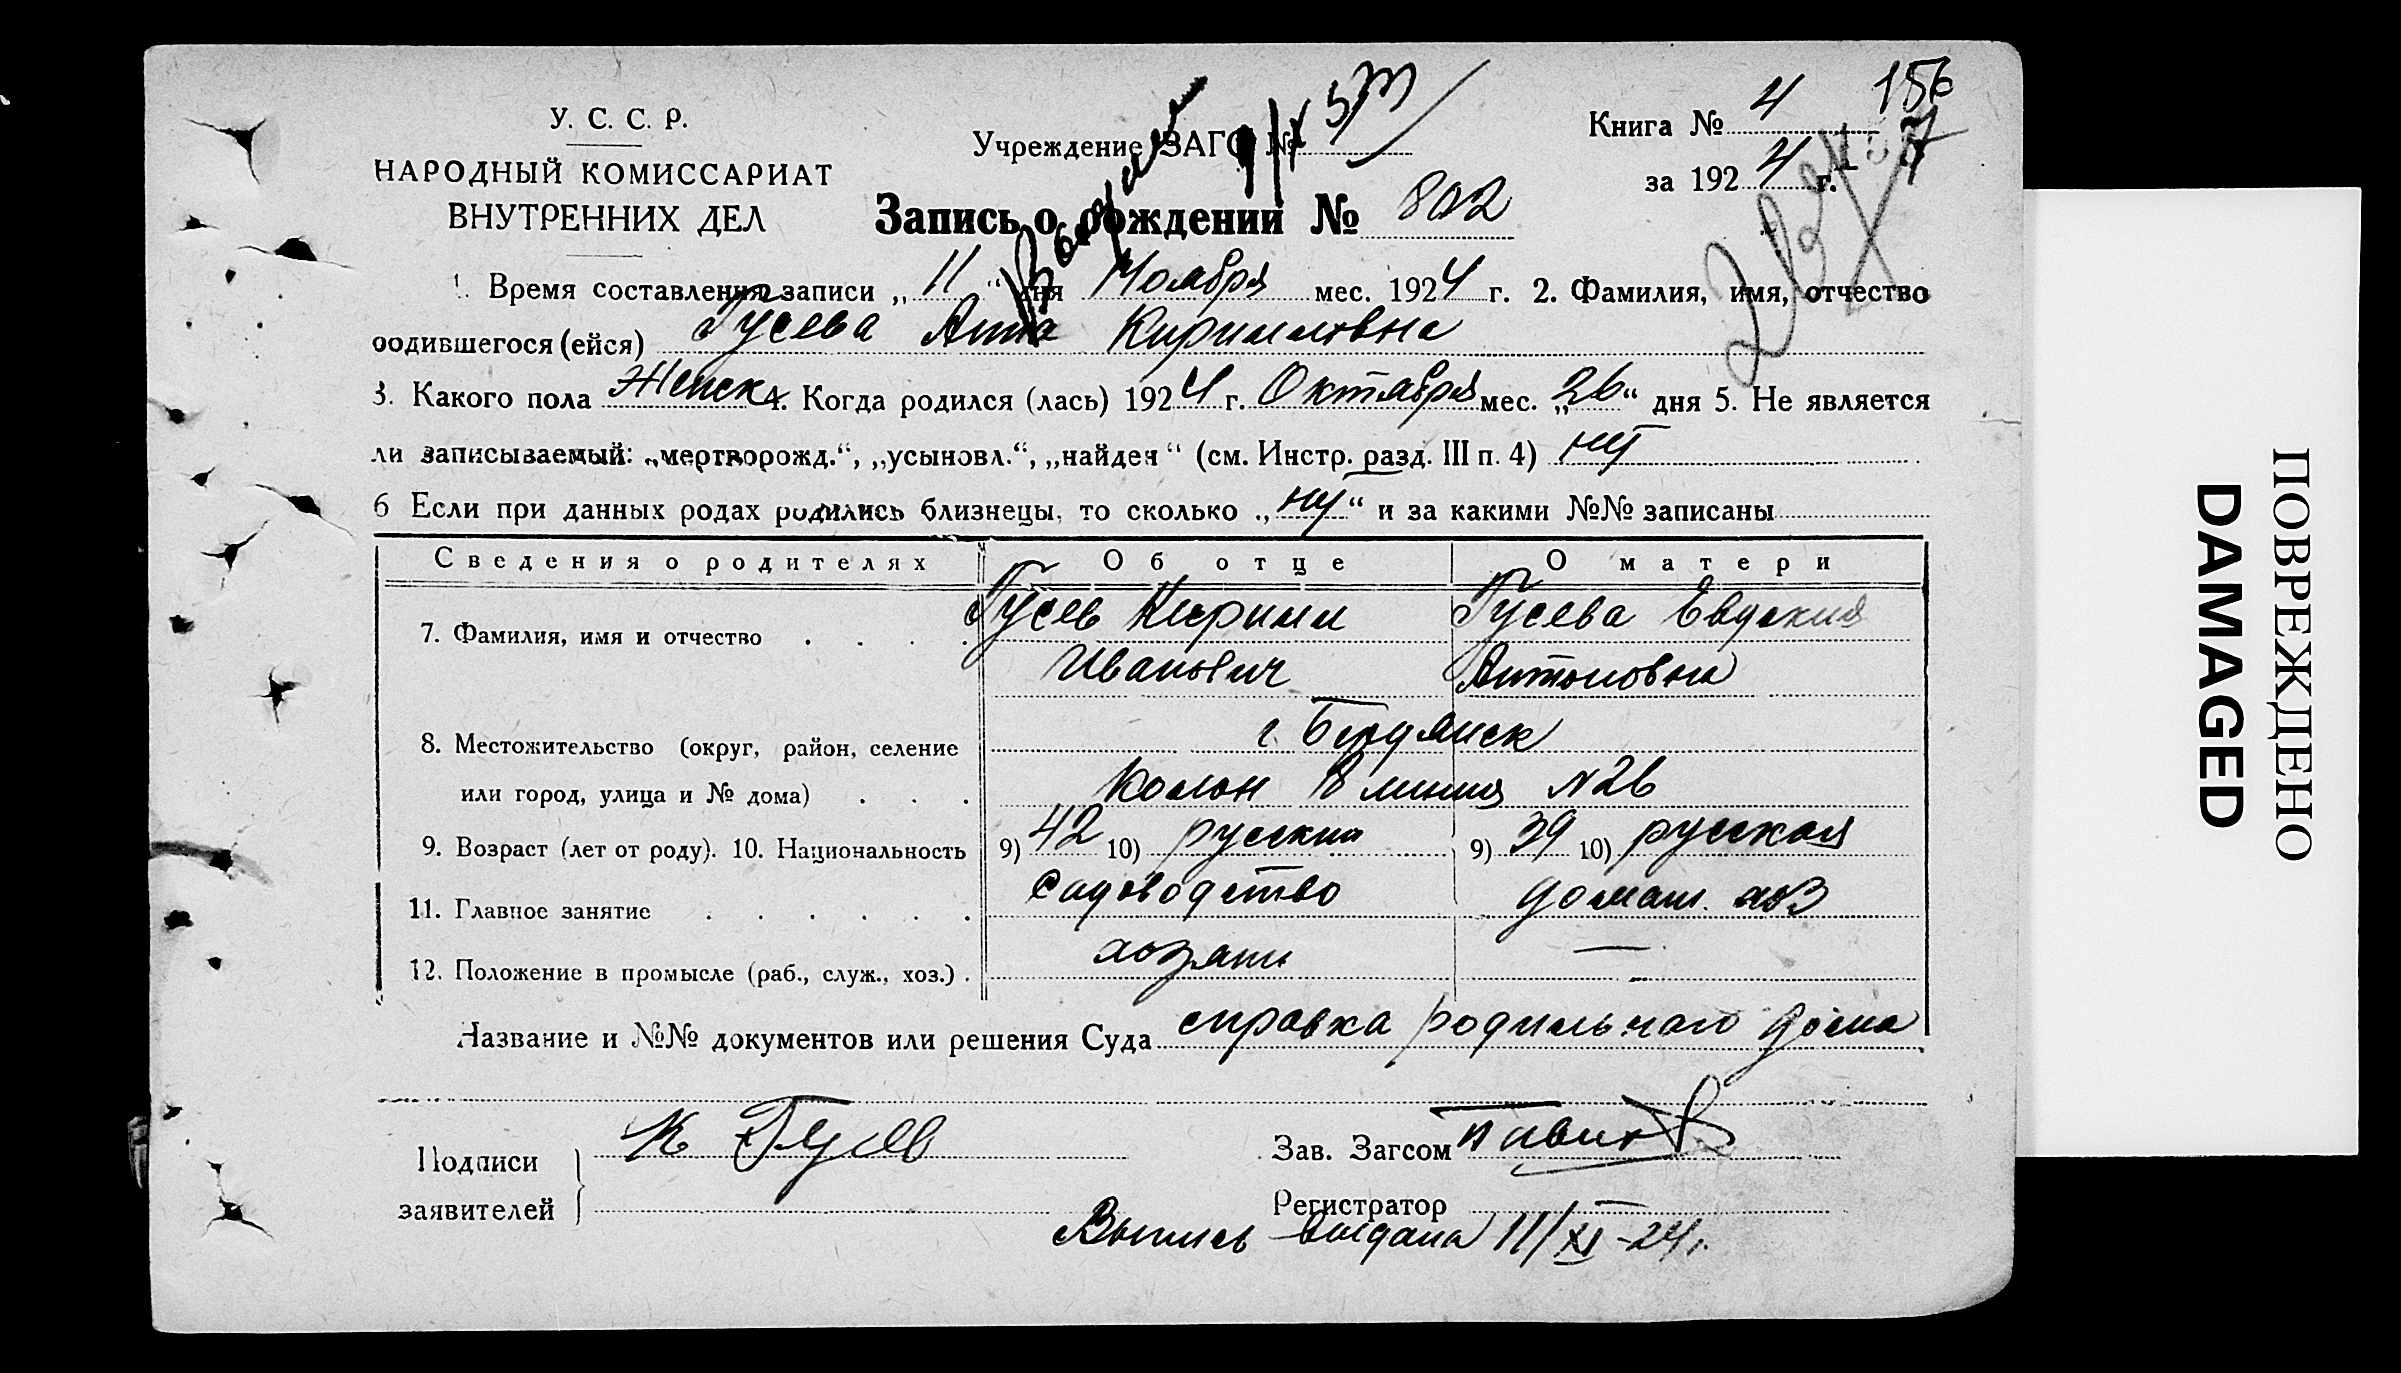 У. С. С. Р.
НАРОДНЫЙ КОМИССАРИАТ
ВНУТРЕННИХ ДЕЛ
Учреждение ЗАГС №
Книга № 4 156
за 1924 г.
Запись о рождении № 802
1. Время составления записи „11“ дня Ноября мес. 1924 г. 2. Фамилия, имя, отчество
родившегося (ейся) Гусева Анна Кирилловна
3. Какого пола Женск 4. Когда родился (лась) 1924 г. Октября мес. „26“ дня 5. Не является
ли записываемый: „мертворожд.“, „усыновл.“, „найден“ (см. Инстр. разд. III п. 4) нет
6 Если при данных родах родились близнецы, то сколько „нет“ и за какими №№ записаны
Сведения о родителях Об отце О матери
7. Фамилия, имя и отчество Гусев Кирилл Гусева Евдокия
Иванович Антоновна
8. Местожительство (округ, район, селение г. Бердянск
или город, улица и № дома) Колон 8 линия N 26
9. Возраст (лет от роду). 10. Национальность 9) 42 10) русский 9) 39 10) русская
11. Главное занятие садоводство домаш. хоз
12. Положение в промысле (раб., служ., хоз.) хозяин —
Название и №№ документов или решения Суда справка родильного дома
Подписи К Гусев Зав. Загсом
заявителей Регистратор
Выпись выдана 11/XI-24г.
ПОВРЕЖДЕНО
DAMAGED